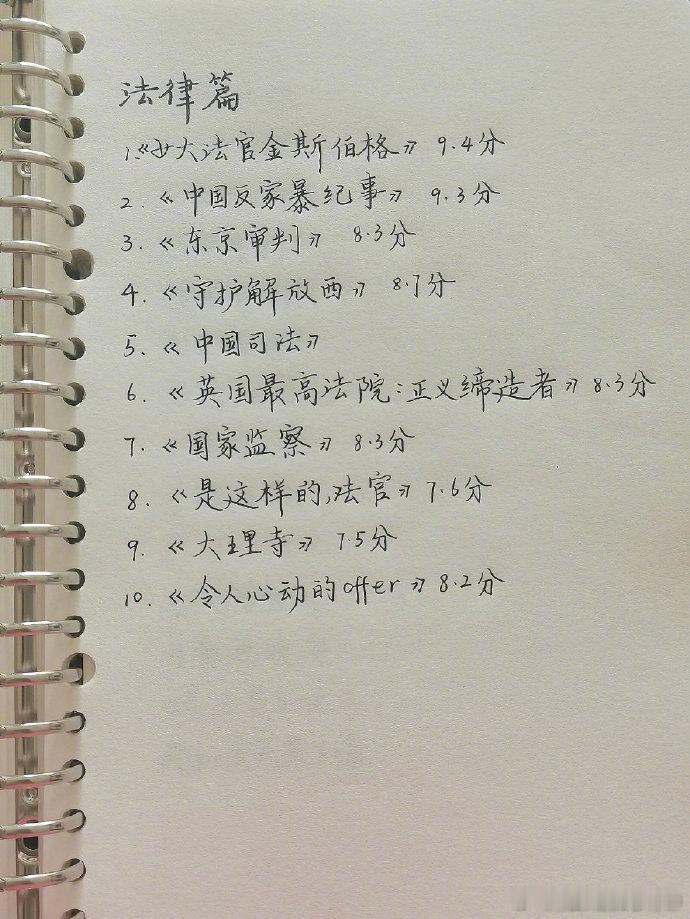 法律篇
1.《女大法官金斯伯格》 9.4分
2.《中国反家暴纪事》 9.3分
3.《东京审判》 8.3分
4.《守护解放西》 8.7分
5.《中国司法》
6.《英国最高法院:正义缔造者》8.3分
7.《国家监察》 8.3分
8.《是这样的,法官》7.6分
9.《大理寺》 7.5分
10.《令人心动的offer》8.2分